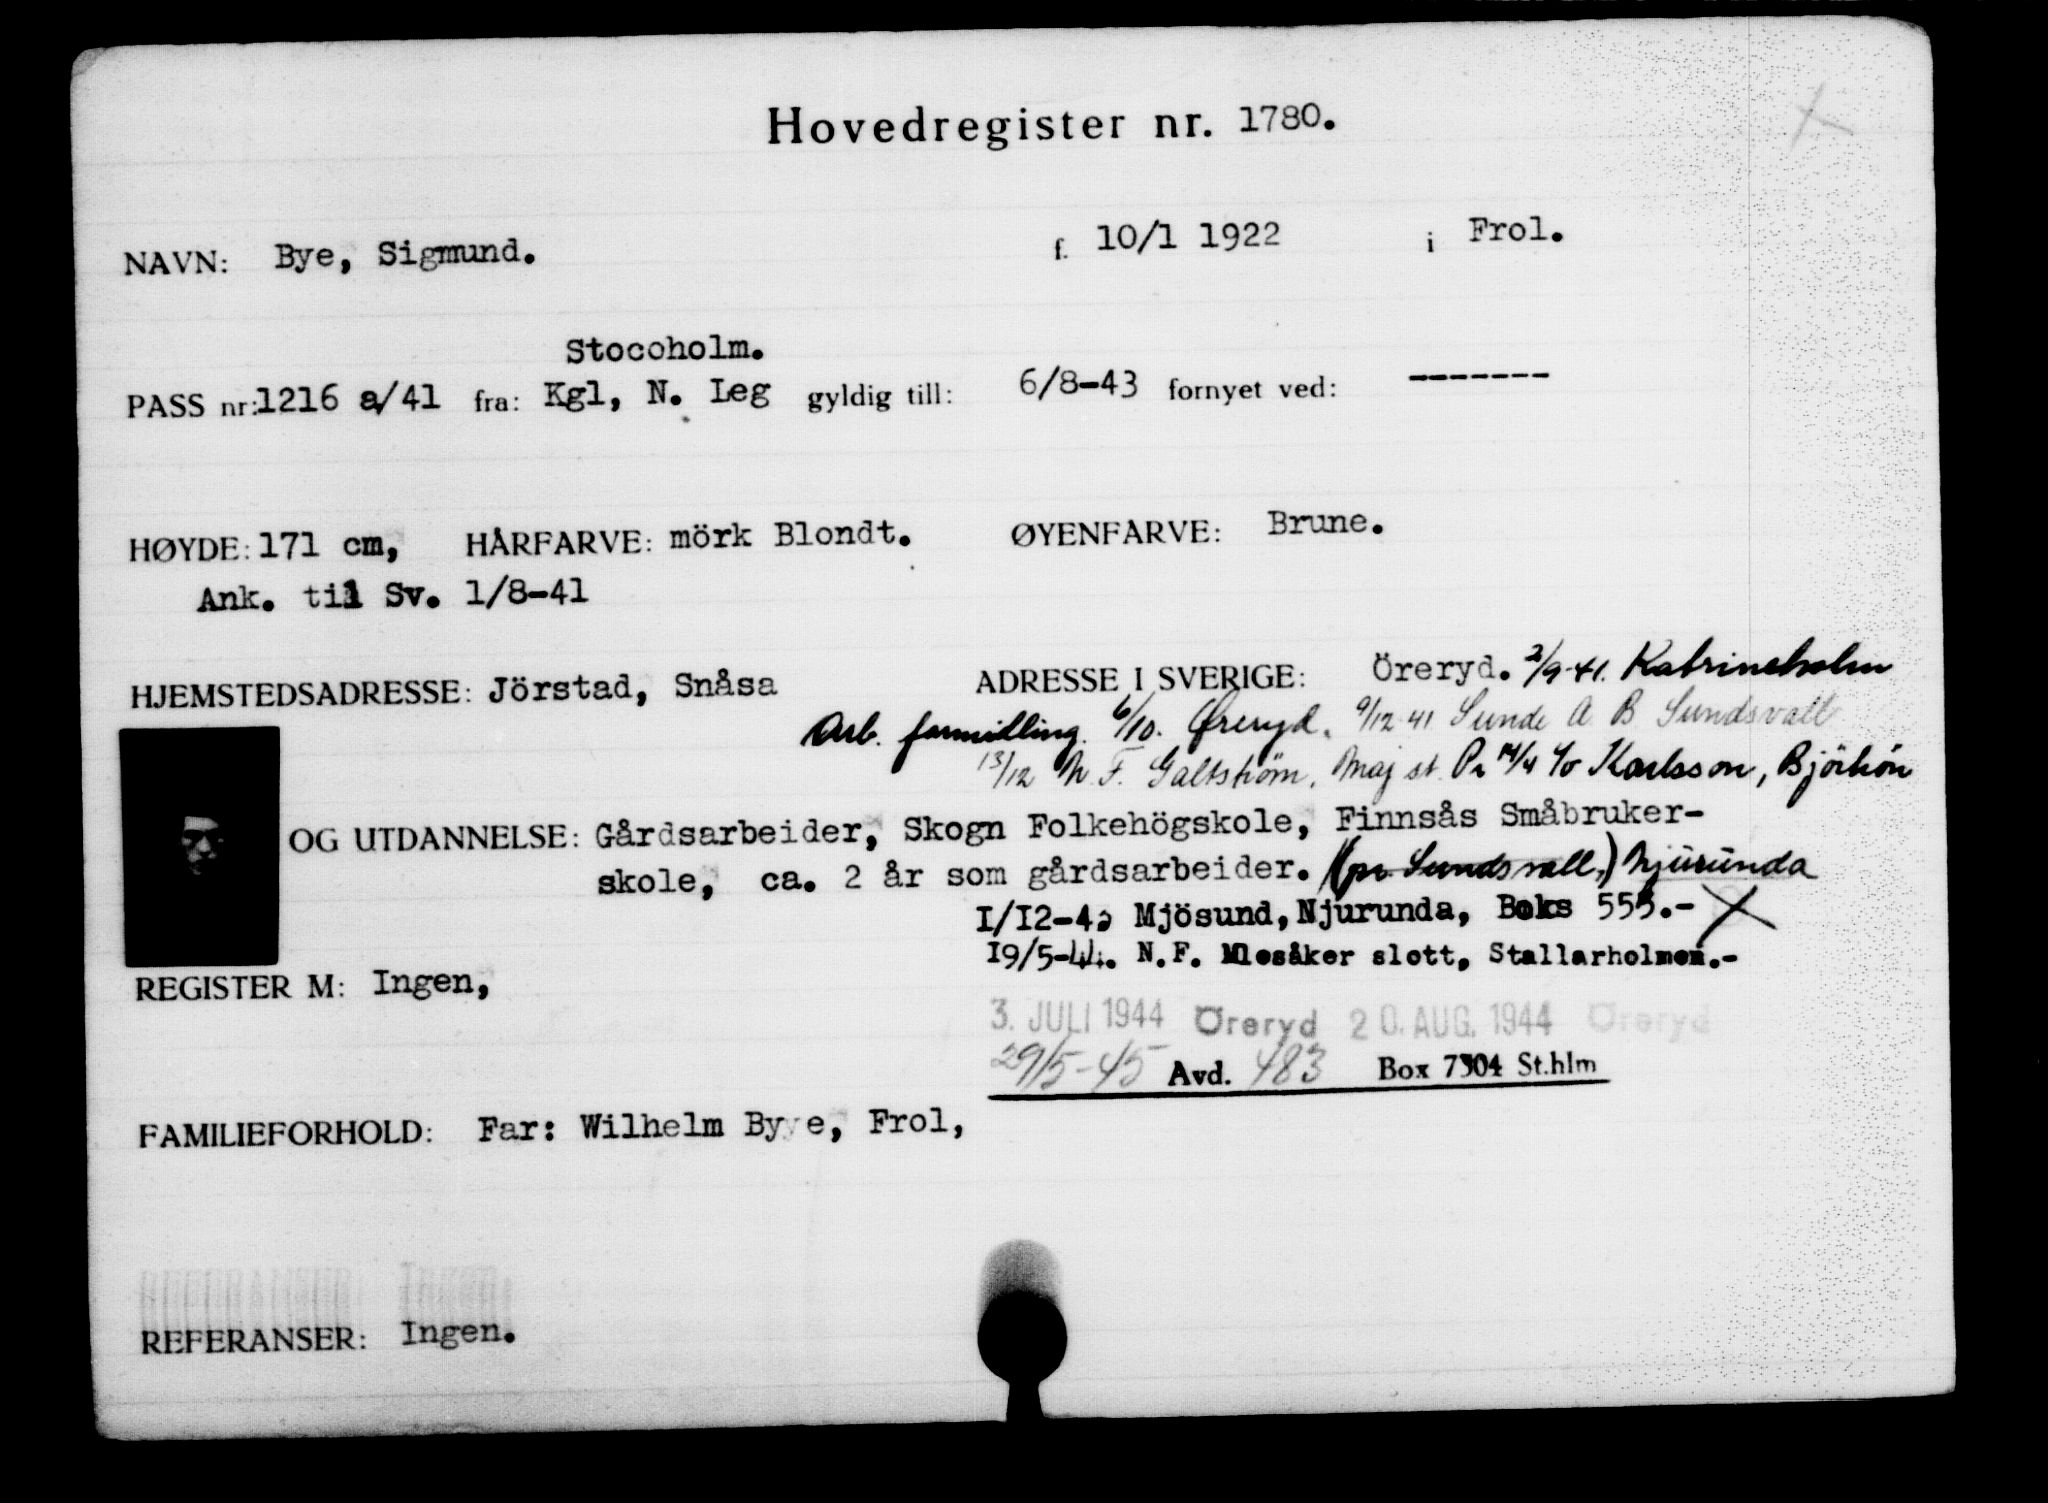 Hovedregister nr. 1780.
NAVN: Bye, Sigmund. f. 10/1 1922 i Frol.
Stocoholm.
PASS nr: 1216 a/41 fra: Kgl, N. Leg gyldig till: 6/8-43 fornyet ved: -------
HØYDE: 171 cm, HÅRFARVE: mörk Blondt. ØYENFARVE: Brune.
Ank. til Sv. 1/8-41
HJEMSTEDSADRESSE: Jörstad, Snåsa ADRESSE I SVERIGE: Öreryd. 2/9-41. Katrineholm
Arb. formidling. 6/10. Øreryd. 9/12-41 Sunde A B Sundsvall
13/12 N. F. Galtström, Maj st. 14/4 c/o Karlsson, Björkön
OG UTDANNELSE: Gårdsarbeider, Skogn Folkehögskole, Finnsås Småbruker-
skole, ca. 2 år som gårdsarbeider. (pr. Sundsvall,) Njurunda
I/I2-43 Mjösund, Njurunda, Boks 555.-
I9/5-44. N.F. Mlesåker slott, Stallarholmen.-
REGISTER M: Ingen,
3. JULI 1944 Öreryd 20. AUG. 1944 Öreryd
29/5-45 Avd. 483 Box 7304 St.hlm
FAMILIEFORHOLD: Far: Wilhelm Bye, Frol,
REFERANSER: Ingen.